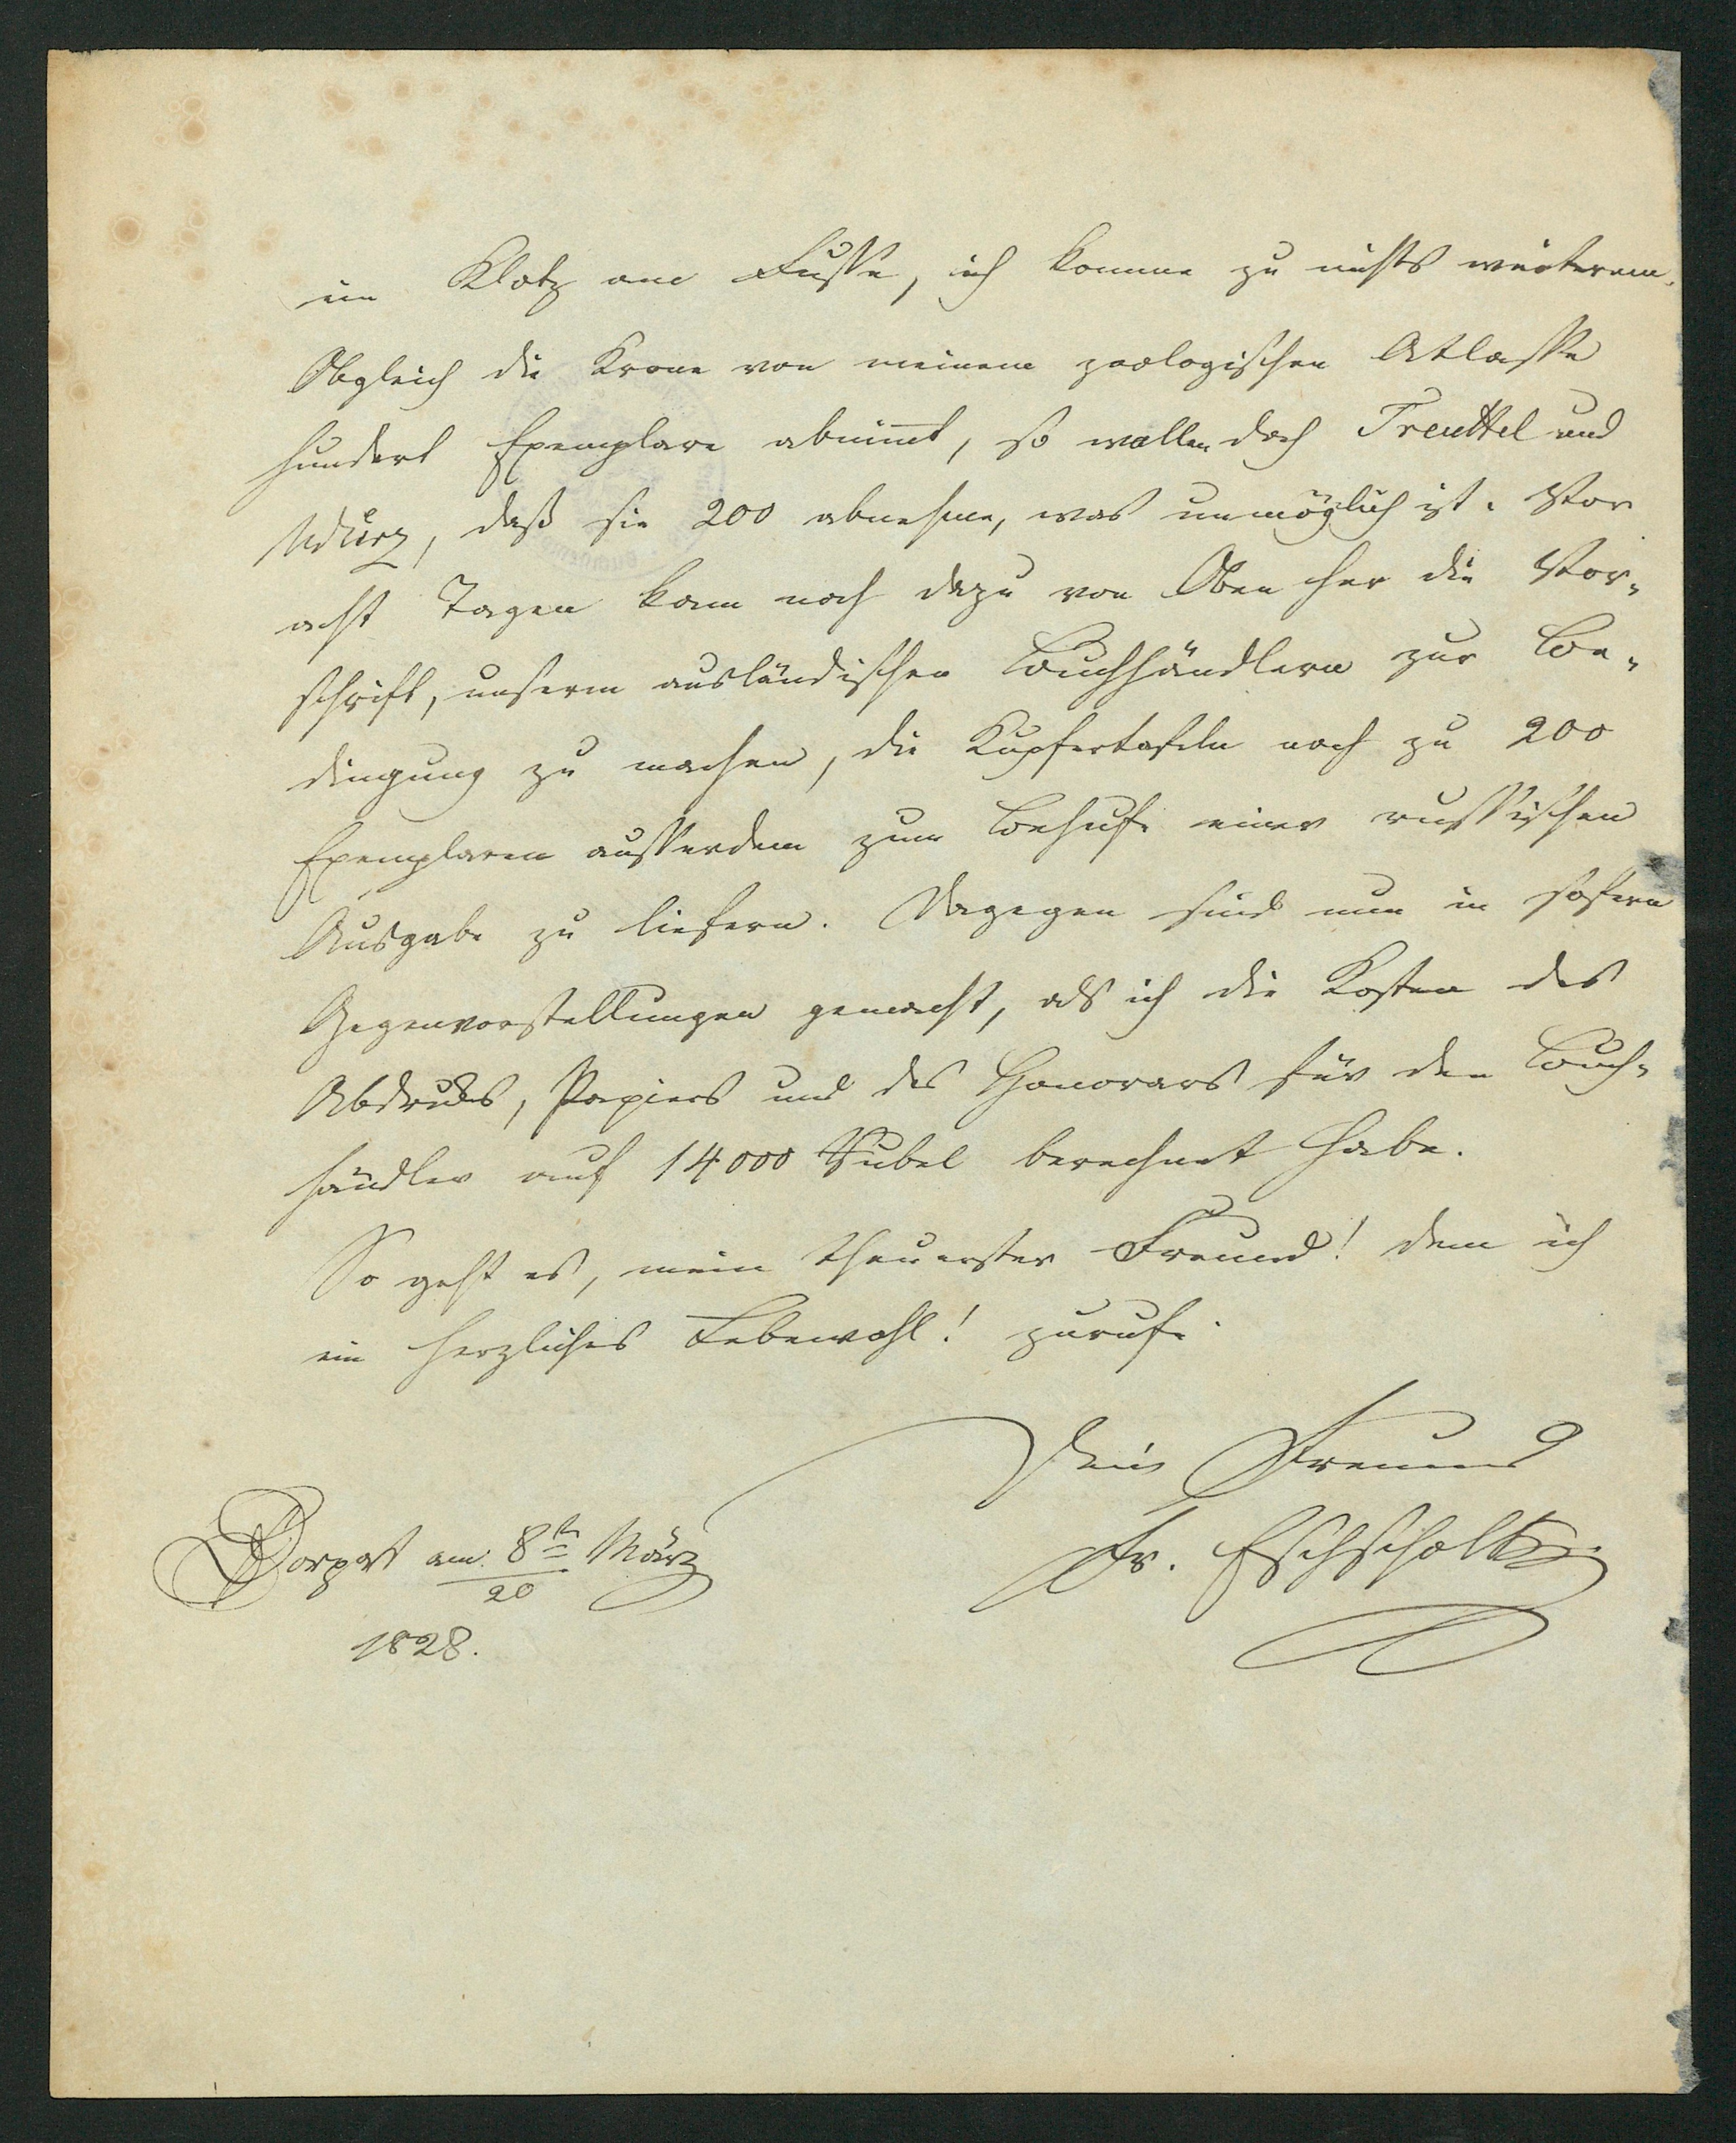 ein Klotz am Fusse, ich komme zu nichts weiterem.
Obgleich die Krone von meinem zoologischen Atlasse
hundert Exemplare abnim̅t, so wollen doch Treuttel und
Würz, daß sie 200 abnehme, was unmöglich ist. Vor
acht Tagen kam noch dazu von Oben her die Vor-
schrift, unserm ausländischen Buchhändlern zur Be-
dingung zu machen, die Kupfertafeln noch zu 200
Exemplaren ausserdem zum Behufe einer russischen
Ausgabe zu liefern. Dagegen sind nun in sofern
Gegenvorstellungen gemacht, als ich die Kosten des
Abdrucks, Papiers und des Honorars für den Buch-
händler auf 14000 Rubel berechnet habe.
So geht es, mein theuerster Freund! dem ich
ein herzliches Lebewohl! zurufe.
Dein Freund
Fr. Eschscholtz.
Dorpat am 8ten März
20
1828.